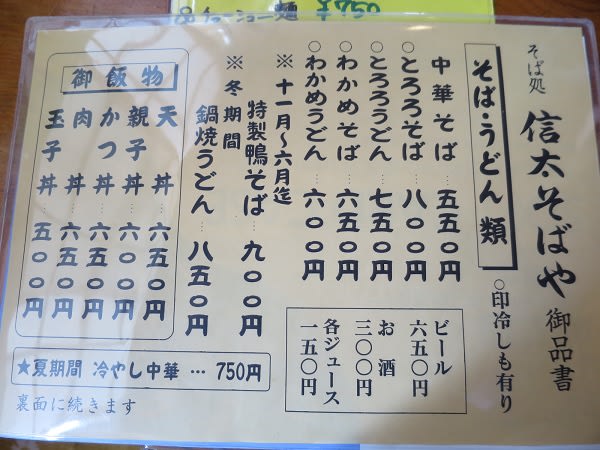 チャーシュー麺 ¥750
そば処 信太そばや 御品書
そば・うどん類
○印冷しも有り
中華そば…五五〇円
○とろろそば…八〇〇円
○とろろうどん…七五〇円
○わかめそば…六五〇円
○わかめうどん…六〇〇円
※十一月~六月迄
特製鴨そば…九〇〇円
※冬期間
鍋焼うどん…八五〇円
御飯物
天丼…六五〇円
親子丼…五〇〇円
かつ丼…六五〇円
肉丼…六五〇円
玉子丼…五〇〇円
ビール 六五〇円
お酒 三〇〇円
各ジュース 一五〇円
★夏期間 冷やし中華 … 750円
裏面に続きます